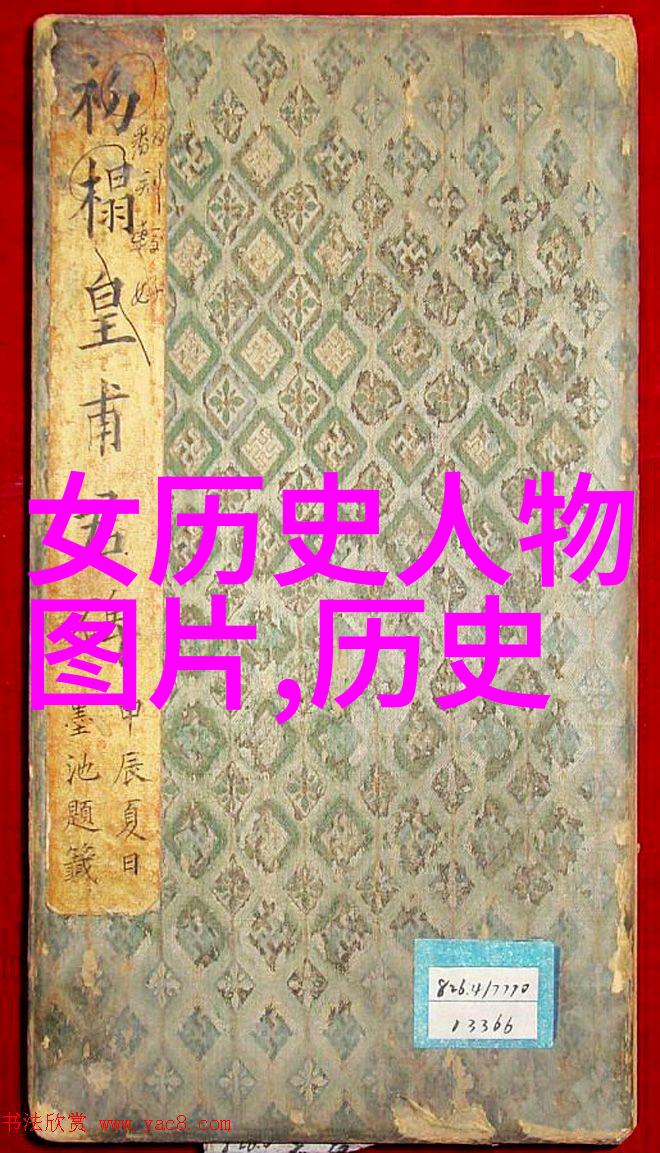 初榻皇甫君碑
翻刻較好
甲辰夏日
墨池題籤
女历史人物
图片,历史
826.4/7770
13366
书法欣赏 www.yac8.com